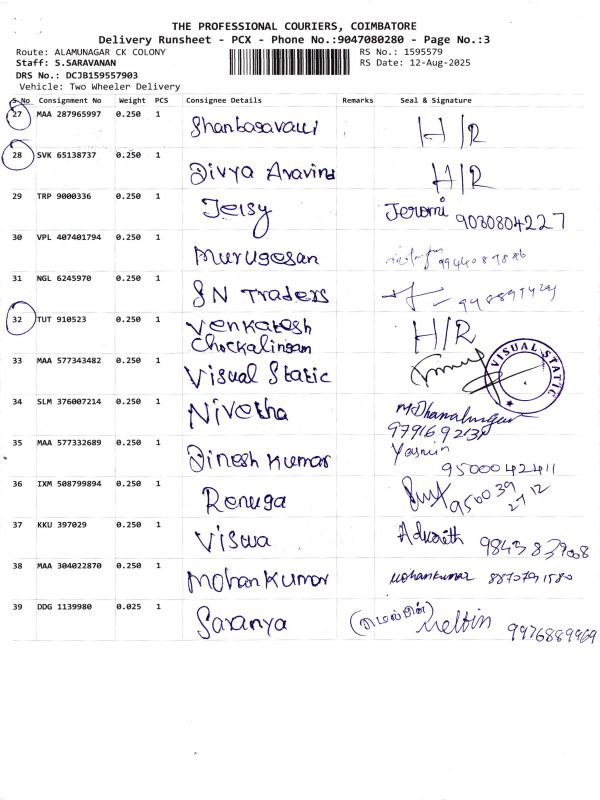 THE PROFESSIONAL COURIERS, COIMBATORE
Delivery Runsheet - PCX - Phone No.:9047080280 - Page No.:3
Route: ALAMUNAGAR CK COLONY RS No.: 1595579
Staff: S.SARAVANAN RS Date: 12-Aug-2025
DRS No.: DCJB159557903
Vehicle: Two Wheeler Delivery
S No Consignment No Weight PCS Consignee Details Remarks Seal & Signature
27 MAA 287965997 0.250 1 H/R
28 SVK 65138737 0.250 1 Divya Aravind H/R
29 TRP 9000336 0.250 1 Jeisy Jeromi 9080804227
30 VPL 407401794 0.250 1 Murugesan
31 NGL 6245970 0.250 1 SN Traders
32 TUT 910523 0.250 1 Venkatesh H/R
Chockalingam
33 MAA 577343482 0.250 1 Visual Static VISUAL STATIC
34 SLM 376007214 0.250 1 Nivetha
35 MAA 577332689 0.250 1 Dinesh Kumar Yasmin
9500042411
36 IXM 508799894 0.250 1 Renuga 950039
2712
37 KKU 397029 0.250 1 Viswa
38 MAA 304022870 0.250 1 Mohan Kumar Mohankumar 8870791580
39 DDG 1139980 0.025 1 Saranya Melbin 9976889969